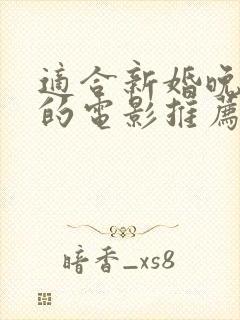 適合新婚晚
的電影推薦
暗香_xs8